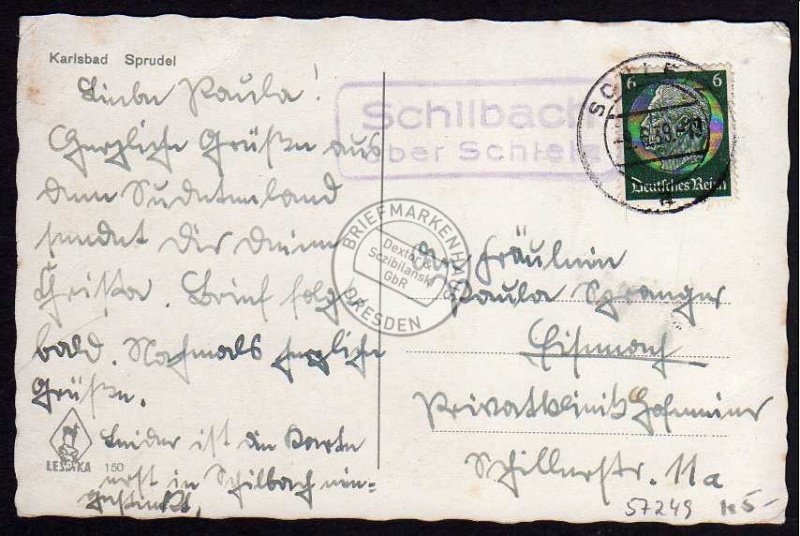 Karlsbad Sprudel
Liebe Paula!
Herzliche Grüße aus
dem Sudetenland
sendet Dir Deine
Brief folgt
bald. Nochmals herzliche
Grüße.
Leider ist die Karte
erst in Schilbach ein-
gesteckt.
LESSKA 150
Schilbach
über Schleiz
SCHLE
6 6
Deutsches Reich
BRIEFMARKENHAUS
Dexter &
Sczibilanski
GbR
DRESDEN
An Fräulein
Paula Spranger
Eisenach
Privatklinik
Schillerstr. 11a
57249 5-